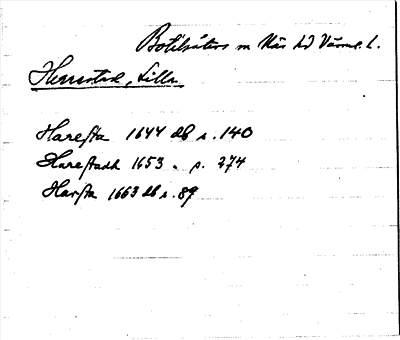 Botilsäters sn Näs hd Värml. l.
Herrestad, Lilla
Haresta 1644 db s. 140
Harestadh 1653 " s. 274
Harsta 1663 db s. 89